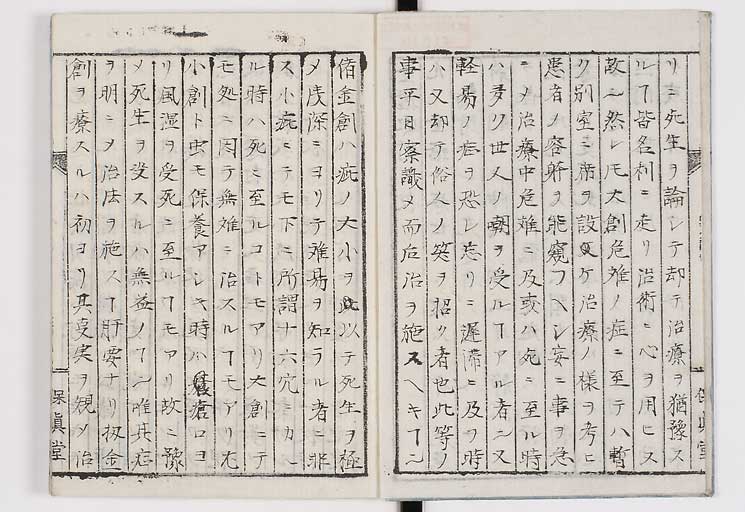 リニ死生ヲ論シテ却テ治療ヲ猶豫ス
ルヿ皆名利ニ走リ治術ニ心ヲ用ヒス
故ニ然レ𪜈大創危難ノ症ニ至テハ暫
ク別室ニ席ヲ設ケ治療ノ様ヲ考ヒ
患者ノ容躰ヲ能窺フヘシ妄ニ事ヲ急
ニメ治療中危難ニ及或ハ死ニ至ル時
ハ多ク世人ノ嘲ヲ受ルヿアル者ニ又
軽易ノ症ヲ恐レ忘リニ遅滞ニ及フ時
ハ又却テ俗人ノ笑ヲ招ク者也此等ノ
事平日察識メ而后治ヲ施スヘキヿニ
偖金創ハ疵ノ大小ヲ以テ死生ヲ極
メ浅深ニヨリテ難易ヲ知ラル者ニ非
ス小疵ニテモ下ニ所謂十六穴ニカヽ
ル時ハ死ニ至ルコトモアリ大創ニテ
モ処ニ因テ無難ニ治スルヿモアリ尤
小創ト虫モ保養アシキ時ハ瘡口ヨ
リ風湿ヲ受死ニ至ルヿモアリ故ニ豫
メ死生ヲ決スルハ無益ノヿニ唯其症
ヲ明ニメ治法ヲ施スヿ肝要ナリ扨金
創ヲ療スルハ初ヨリ其虚実ヲ観メ治
保真堂